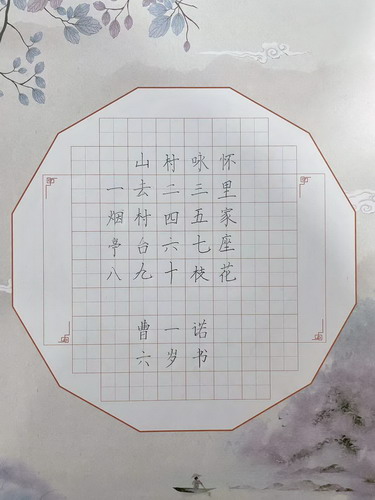 山村咏怀
一去二三里
烟村四五家
亭台六七座
八九十枝花
曹一诺
六岁书